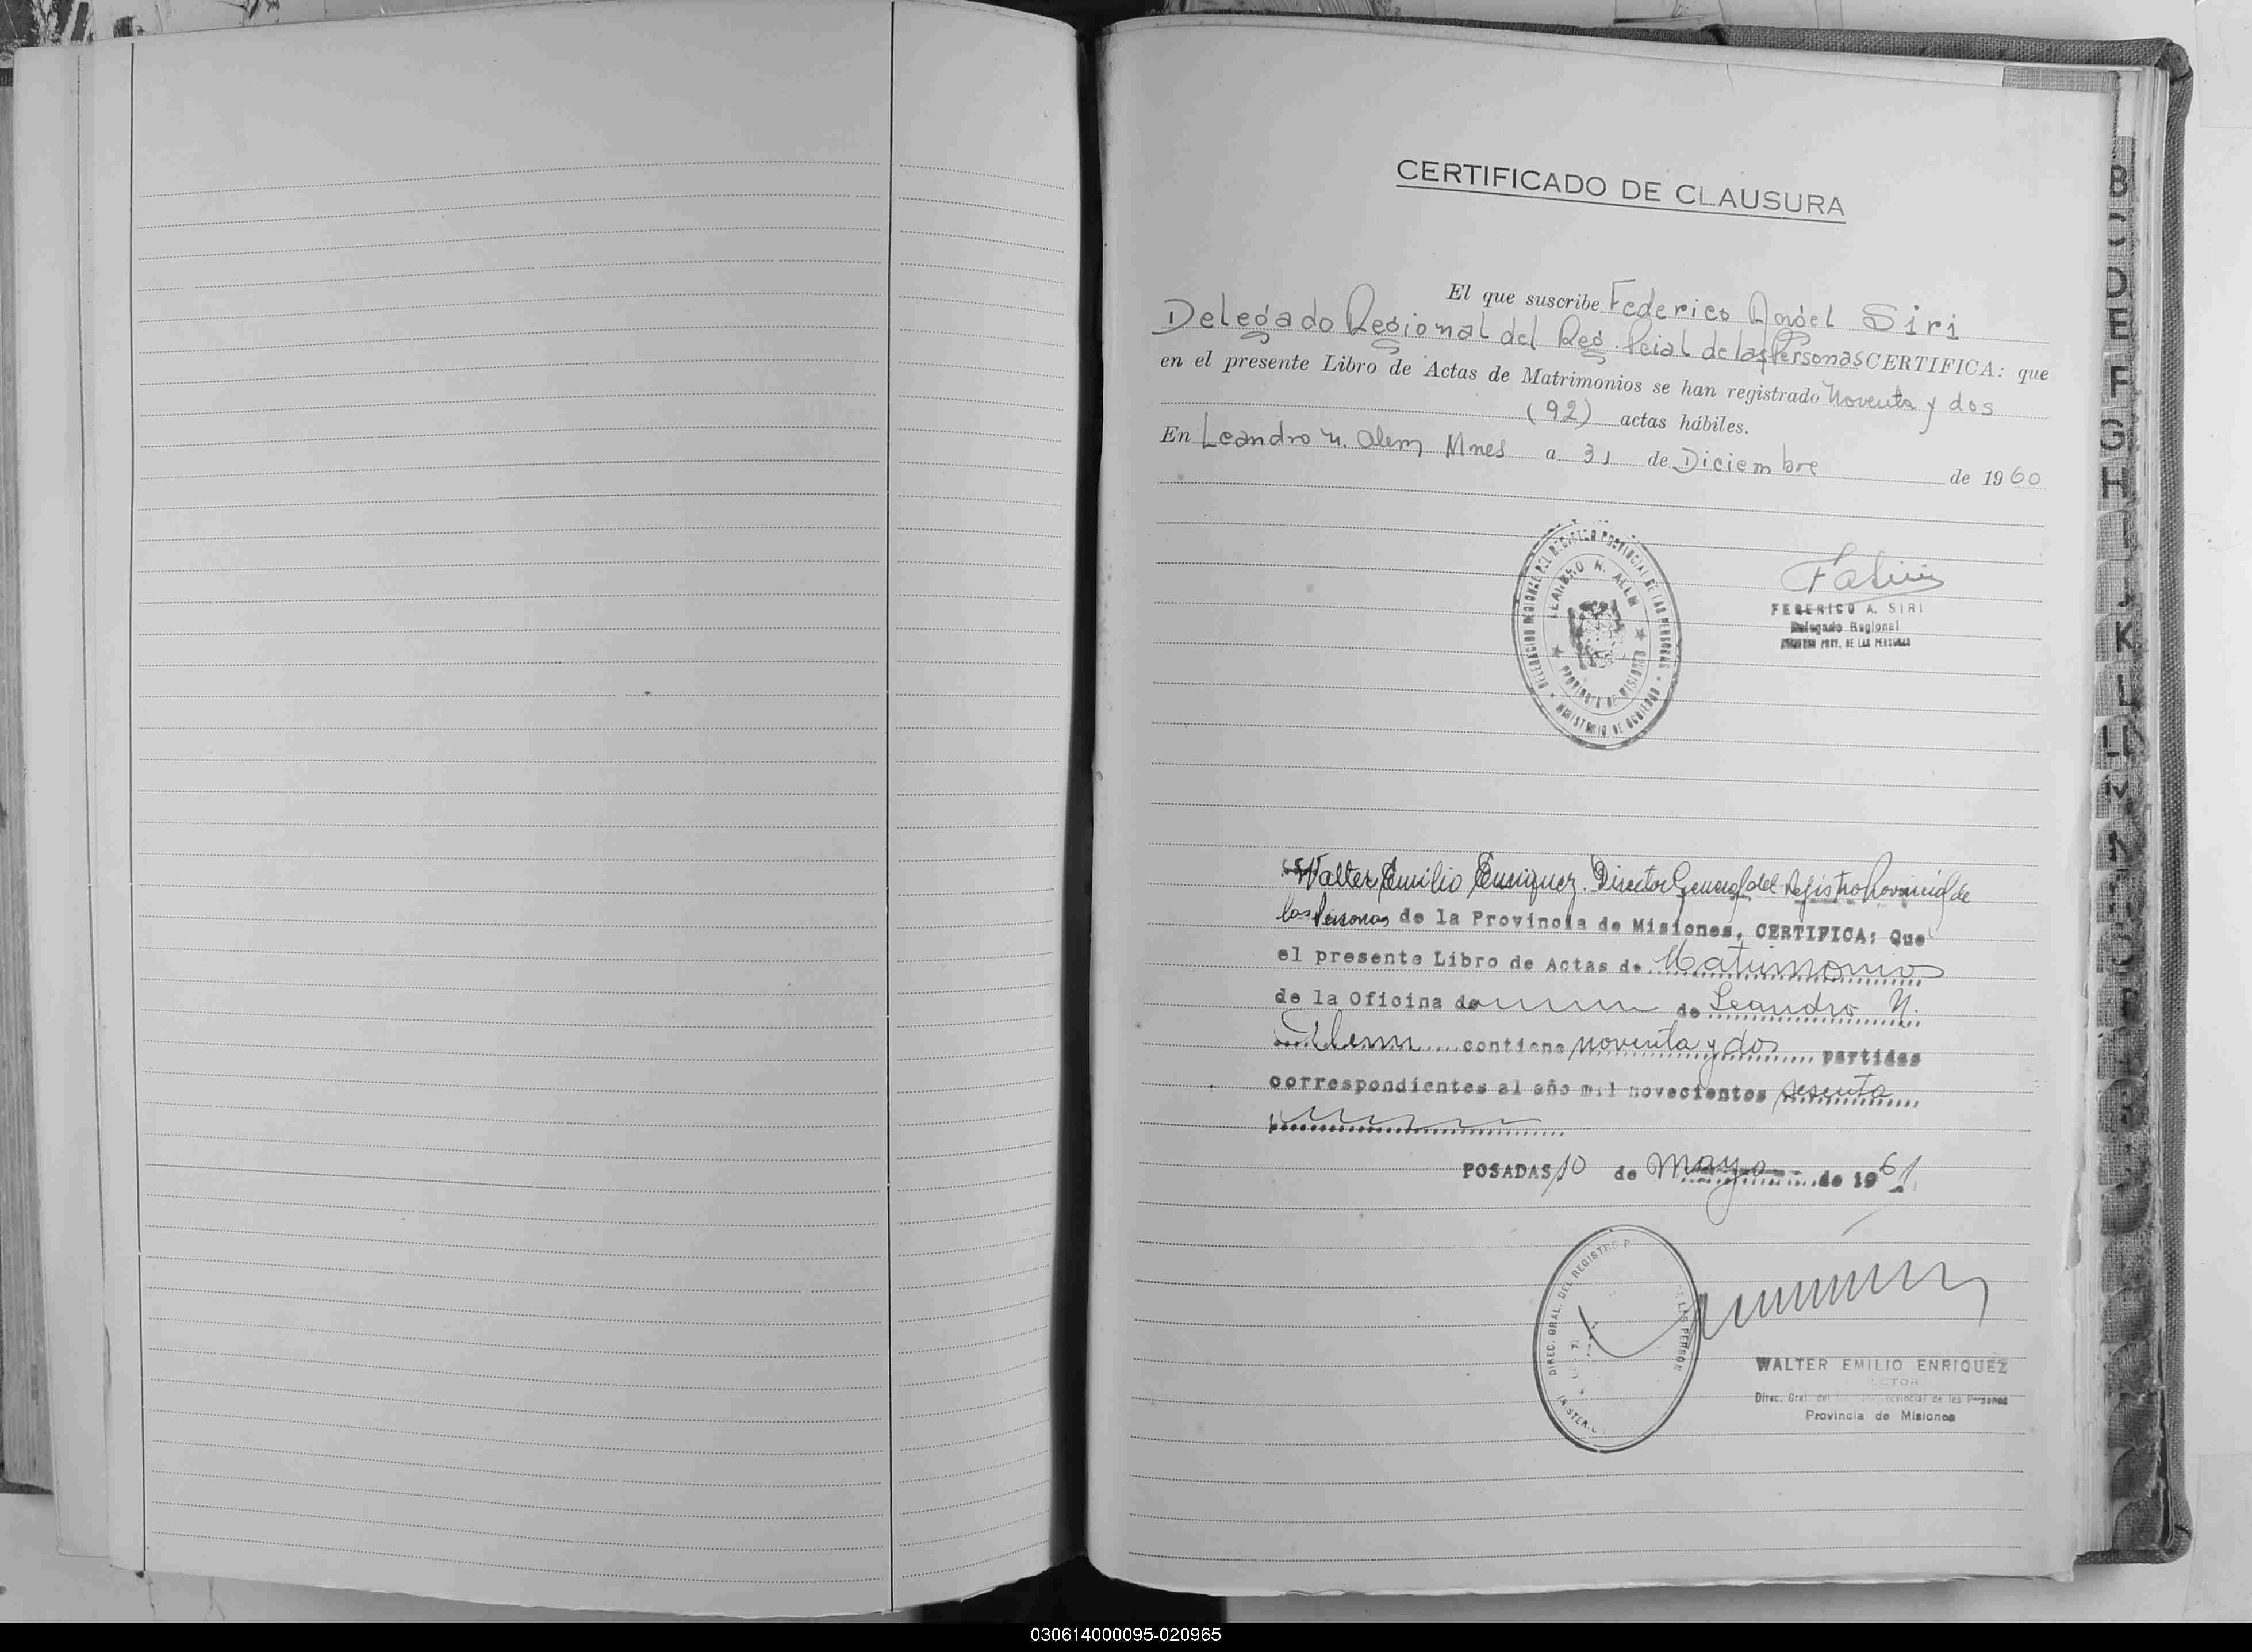 CERTIFICADO DE CLAUSURA
El que suscribe Federico Angel Siri
Delegado Regional del Reg. Pcial de las Personas CERTIFICA: que
en el presente Libro de Actas de Matrimonios se han registrado Noventa y dos
(92) actas hábiles.
En Leandro N. Alem Mnes a 31 de Diciembre de 1960
DELEGACION REGIONAL DEL REGISTRO PROVINCIAL DE LAS PERSONAS
LEANDRO N. ALEM
PROVINCIA DE MISIONES
MINISTERIO DE GOBIERNO
FEDERICO A. SIRI
Delegado Regional
PROV. DE LAS PERSONAS
Walter Emilio Enriquez. Director General del Registro Provincial de
las Personas de la Provincia de Misiones, CERTIFICA: Que
el presente Libro de Actas de Matrimonios
de la Oficina de de Leandro N.
Alem contiene noventa y dos partidas
correspondientes al año mil novecientos sesenta
POSADAS, 10 de Mayo de 1961
DIREC. GRAL. DEL REGISTRO P
WALTER EMILIO ENRIQUEZ
Direc. Gral. del Provincial de las Personas
Provincia de Misiones
B
C
D
E
F
G
H
I
J
K
L
M
030614000095-020965